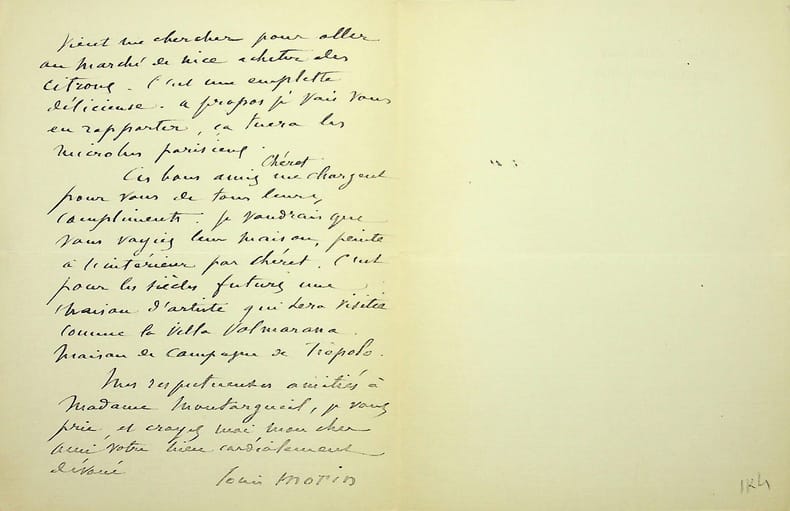 vient me chercher pour aller
au marché de nice acheter des
citrons. C'est une emplette
délicieuse. a propos je vais vous
en rapporter, ça tuera les
microbes parisiens.
Ces bons amis Chéret me chargent
pour vous de tous leurs
compliments. je voudrais que
vous voyiez leur maison, peinte
à l'intérieur par chéret. C'est
pour les siècles futurs une
maison d'artiste qui sera visitée
comme la villa Valmarana.
maison de campagne de Tiepolo.
Mes respectueuses amitiés à
Madame Montorgueil, je vous
prie et croyez moi mon cher
ami votre bien cordialement
dévoué
Louis Morin